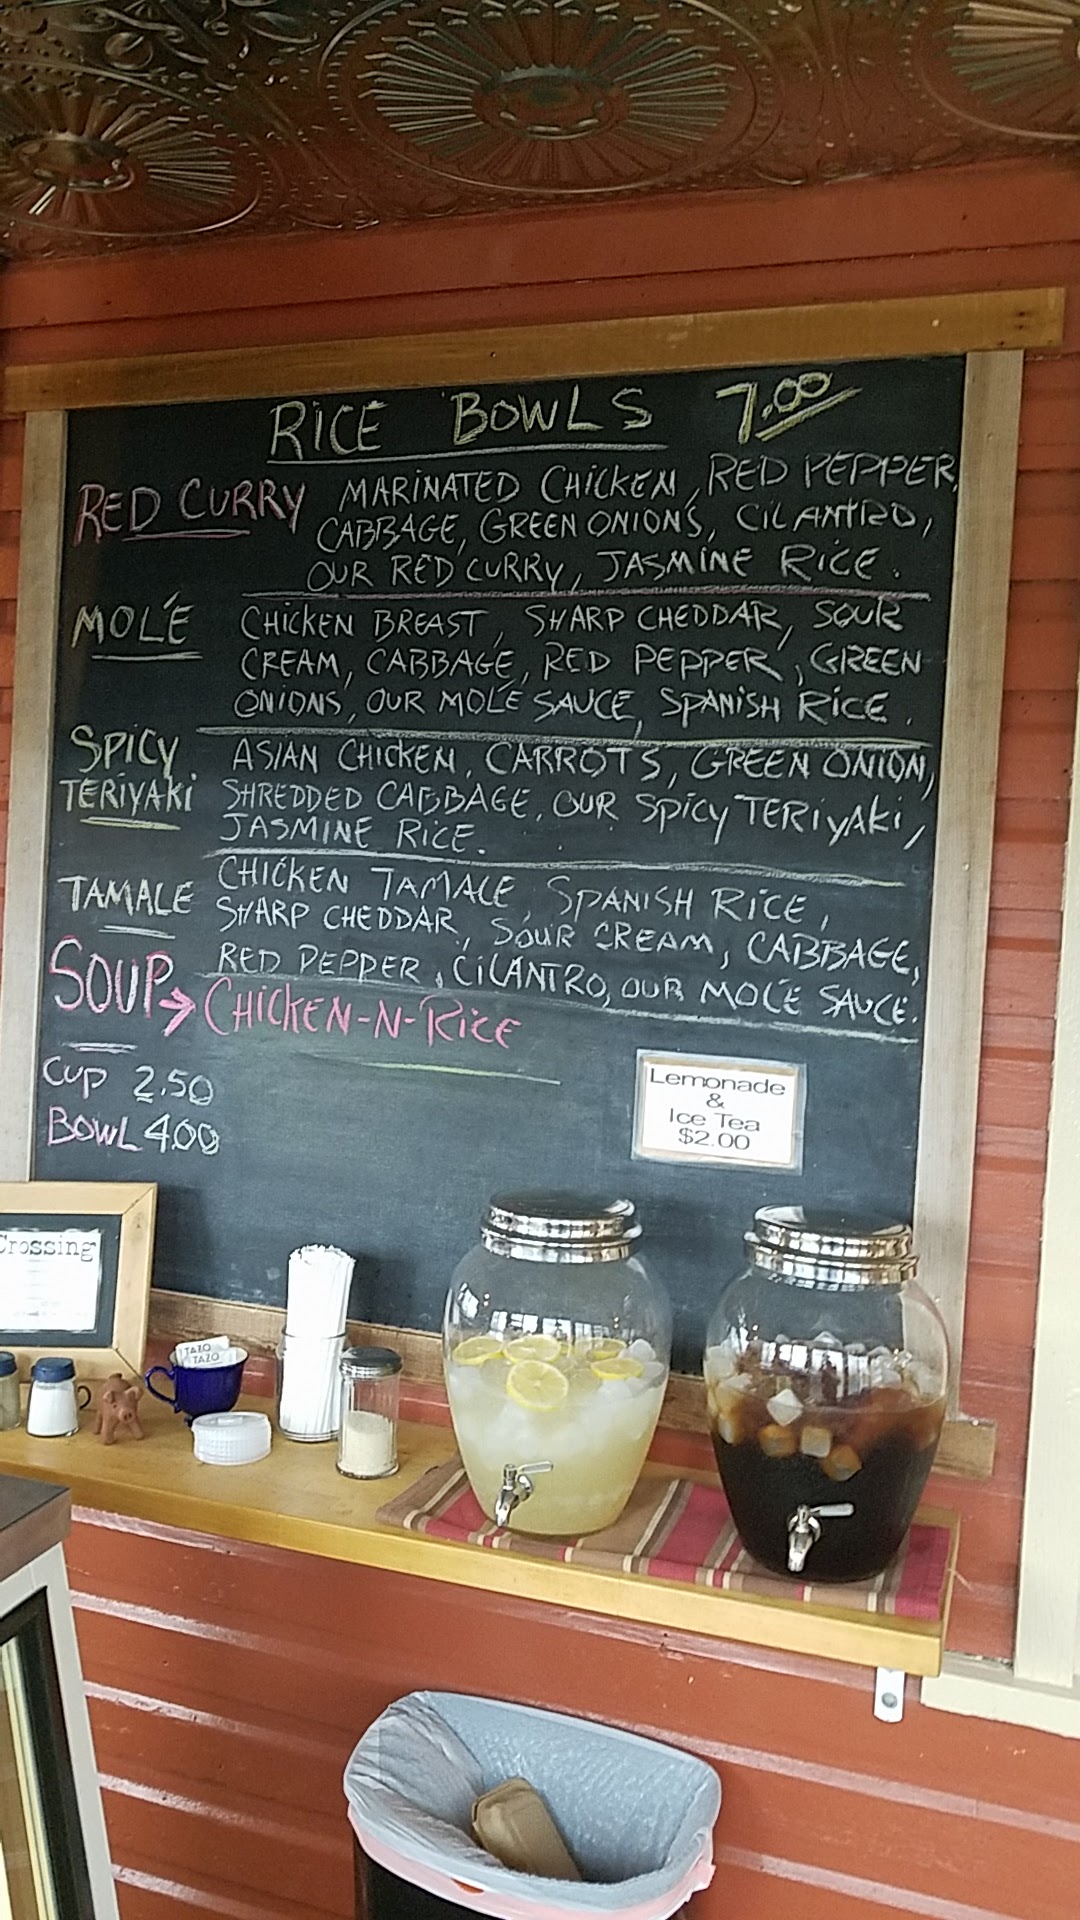 RICE BOWLS 7.00
RED CURRY MARINATED CHICKEN, RED PEPPER,
CABBAGE, GREEN ONIONS, CILANTRO,
OUR RED CURRY, JASMINE RICE.
MOLÉ CHICKEN BREAST, SHARP CHEDDAR, SOUR
CREAM, CABBAGE, RED PEPPER, GREEN
ONIONS, OUR MOLÉ SAUCE, SPANISH RICE.
SPICY ASIAN CHICKEN, CARROTS, GREEN ONION,
TERIYAKI SHREDDED CABBAGE, OUR SPICY TERIYAKI,
JASMINE RICE.
TAMALE CHICKEN TAMALE, SPANISH RICE,
SHARP CHEDDAR, SOUR CREAM, CABBAGE,
RED PEPPER, CILANTRO, OUR MOLÉ SAUCE.
SOUP → CHICKEN-N-RICE
CUP 2.50
BOWL 4.00
Lemonade
&
Ice Tea
$2.00
Crossing
TAZO
TAZO